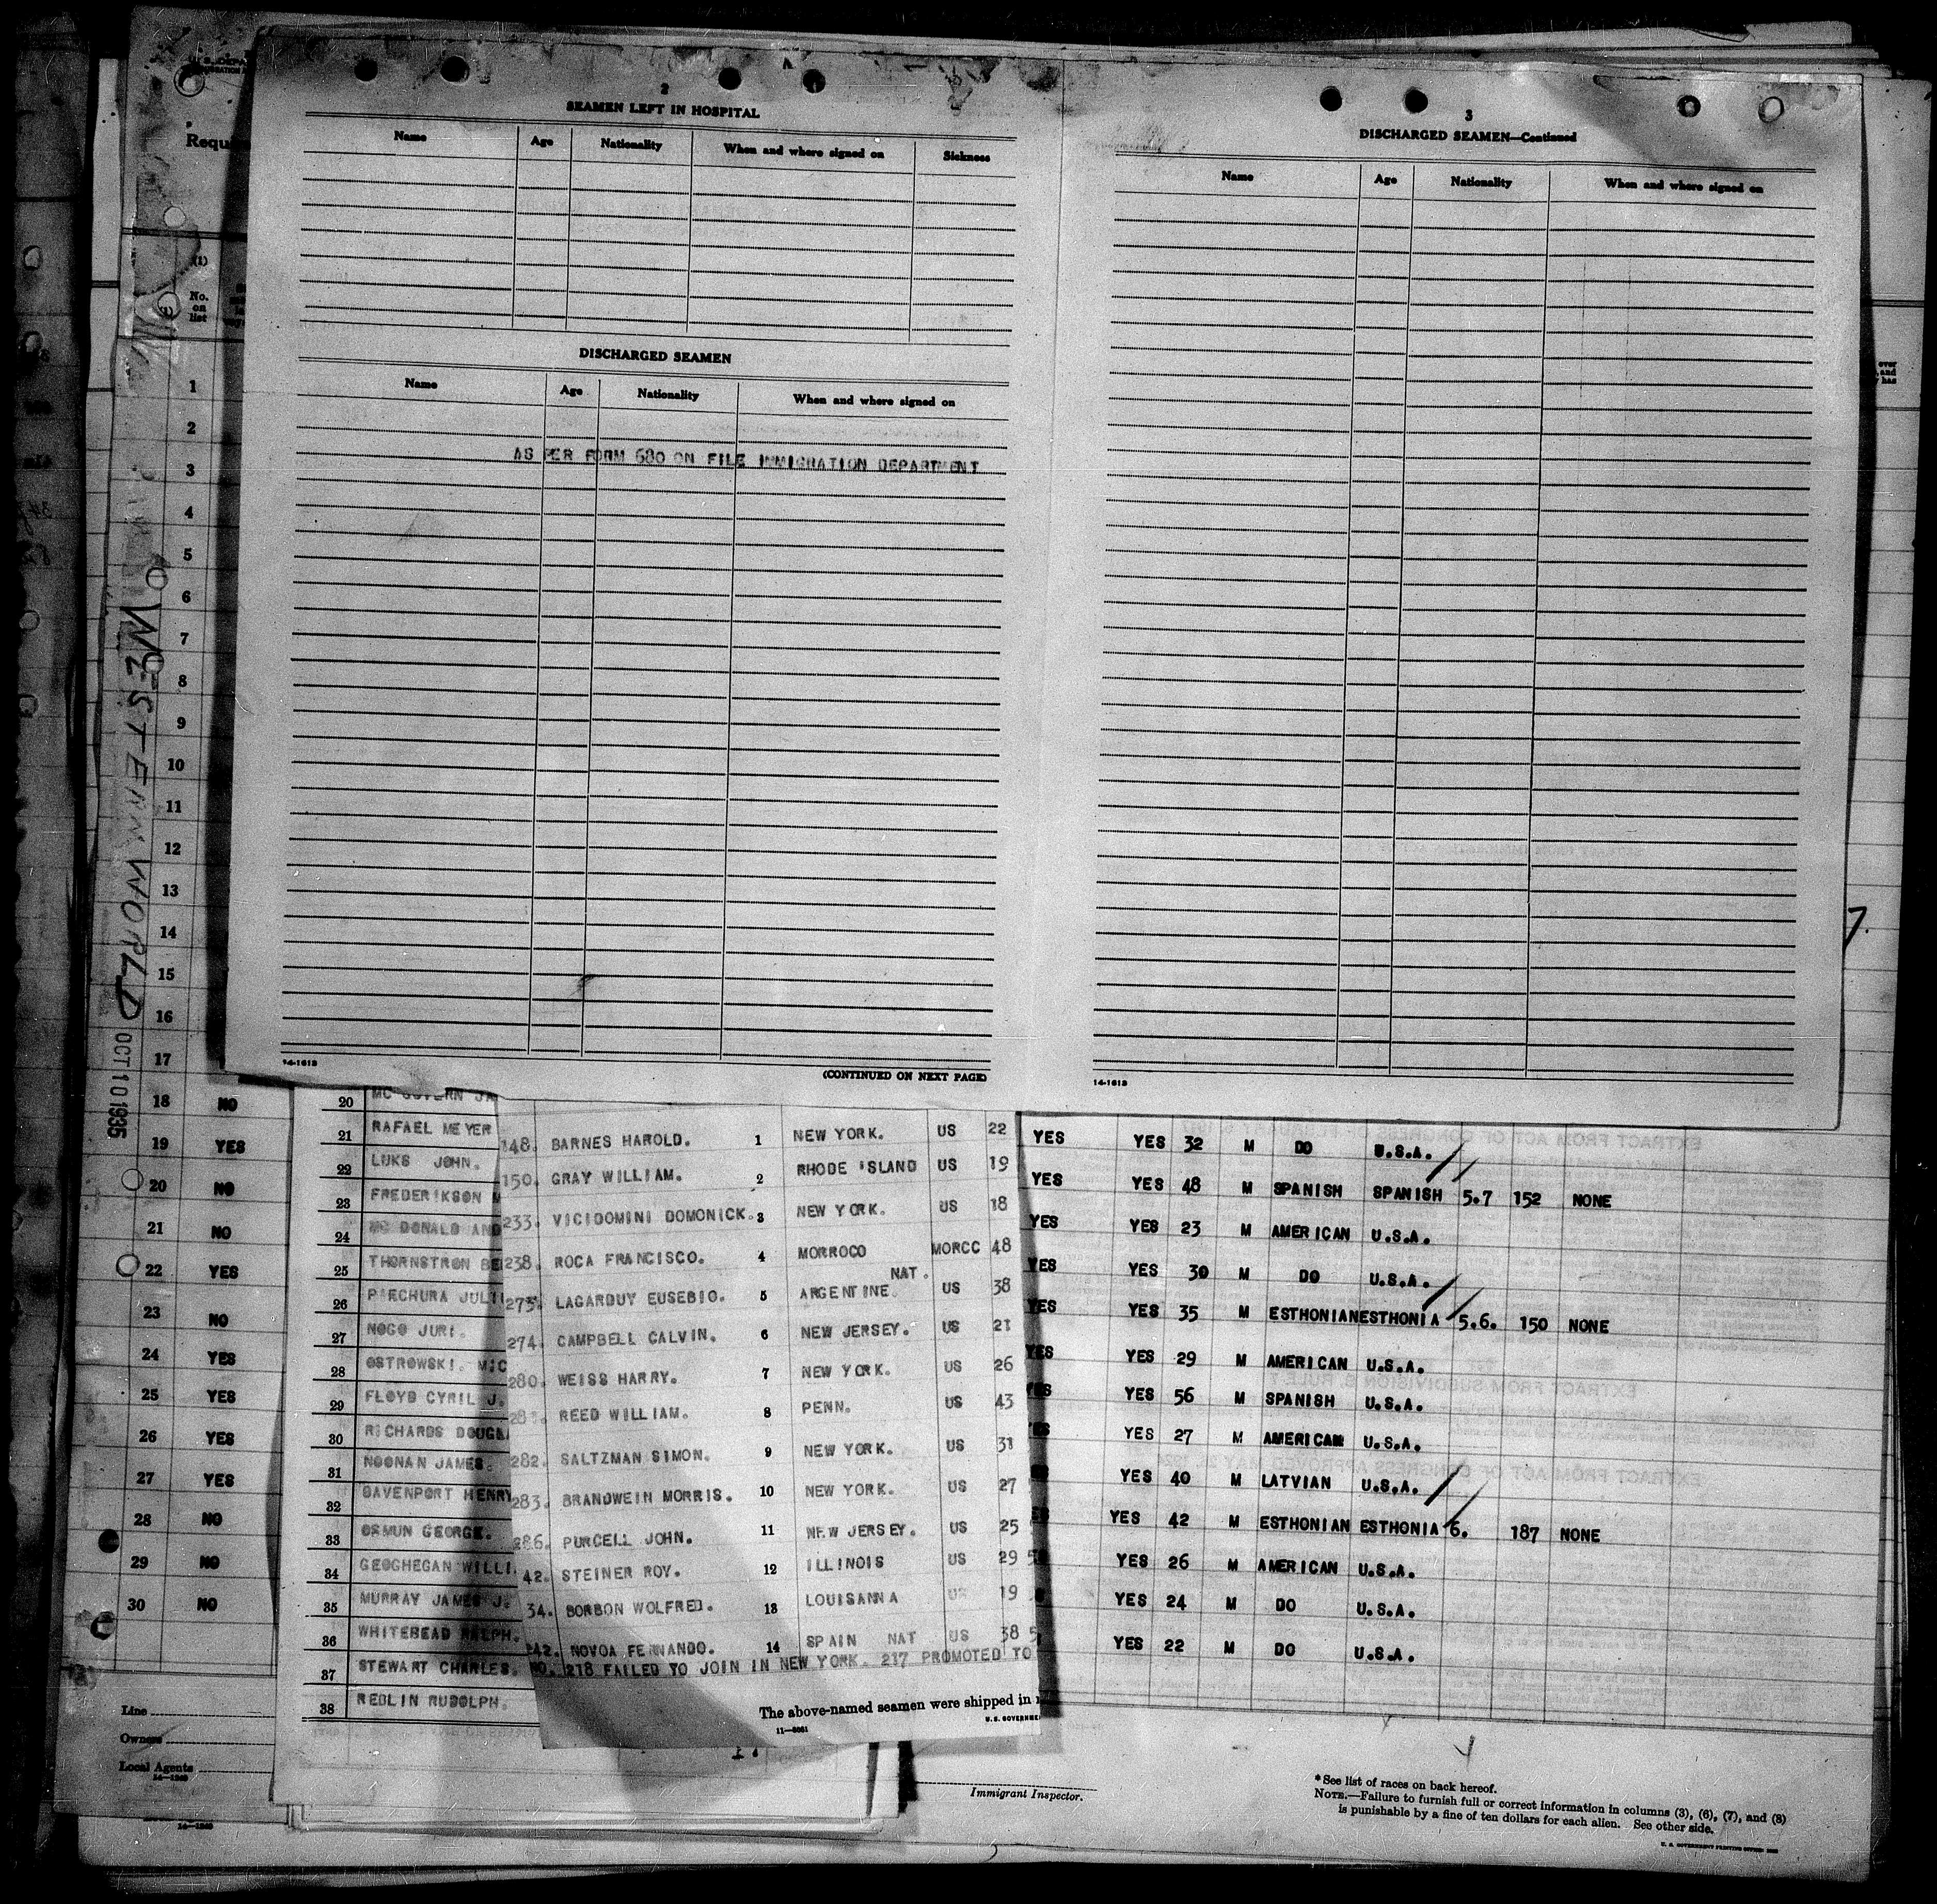 2
SEAMEN LEFT IN HOSPITAL
Name Age Nationality When and where signed on Sickness
DISCHARGED SEAMEN
Name Age Nationality When and where signed on
AS PER FORM 680 ON FILE IMMIGRATION DEPARTMENT
14-1613
(CONTINUED ON NEXT PAGE)
3
DISCHARGED SEAMEN—Continued
Name Age Nationality When and where signed on
14-1613
(1)
No.
on
list
1
2
3
4
5
6
7
8
9
10
11
12
13
14
15
16
17
18 NO
19 YES
20 NO
21 NO
22 YES
23 NO
24 YES
25 YES
26 YES
27 YES
28 NO
29 NO
30 NO
Line
Owners
Local Agents
14-1240
WESTERN WORLD
OCT 10 1935
20
21 RAFAEL MEYER
22 LUKS JOHN.
23 FREDERIKSON
24 MC DONALD AND
25 THORNSTRON BE
26 PIECHURA JULI
27 NOGO JURI.
28 OSTROWSKI. MIC
29 FLOYD CYRIL J.
30 RICHARDS DOUGL
31 NOONAN JAMES.
32 DAVENPORT HENRY
33 OSMUN GEORGE.
34 GEOGHEGAN WILLI
35 MURRAY JAMES J.
36 WHITEBEAD RALPH.
37 STEWART CHARLES.
38 REDLIN RUDOLPH.
148. BARNES HAROLD. 1 NEW YORK. US 22
150. GRAY WILLIAM. 2 RHODE ISLAND US 19
233. VICIDOMINI DOMONICK. 3 NEW YORK. US 18
238. ROCA FRANCISCO. 4 MORROCO MORCC 48
NAT.
273. LAGARDUY EUSEBIO. 5 ARGENTINE. US 38
274. CAMPBELL CALVIN. 6 NEW JERSEY. US 21
280. WEISS HARRY. 7 NEW YORK. US 26
281. REED WILLIAM. 8 PENN. US 43
282. SALTZMAN SIMON. 9 NEW YORK. US 31
283. BRANDWEIN MORRIS. 10 NEW YORK. US 27
286. PURCELL JOHN. 11 NEW JERSEY. US 25
42. STEINER ROY. 12 ILLINOIS US 29
34. BORBON WOLFRED. 13 LOUISANNA US 19
242. NOVOA FERNANDO. 14 SPAIN NAT US 38
NO. 218 FAILED TO JOIN IN NEW YORK. 217 PROMOTED TO
The above-named seamen were shipped in
11-8061
U.S. GOVERNME
YES YES 32 M DO U.S.A.
YES YES 48 M SPANISH SPANISH 5.7 152 NONE
YES YES 23 M AMERICAN U.S.A.
YES YES 30 M DO U.S.A.
YES YES 35 M ESTHONIAN ESTHONIA 5.6. 150 NONE
YES YES 29 M AMERICAN U.S.A.
YES YES 56 M SPANISH U.S.A.
YES 27 M AMERICAN U.S.A.
YES 40 M LATVIAN U.S.A.
YES 42 M ESTHONIAN ESTHONIA 6. 187 NONE
YES 26 M AMERICAN U.S.A.
YES 24 M DO U.S.A.
YES 22 M DO U.S.A.
Immigrant Inspector.
*See list of races on back hereof.
NOTE.—Failure to furnish full or correct information in columns (3), (6), (7), and (8)
is punishable by a fine of ten dollars for each alien. See other side.